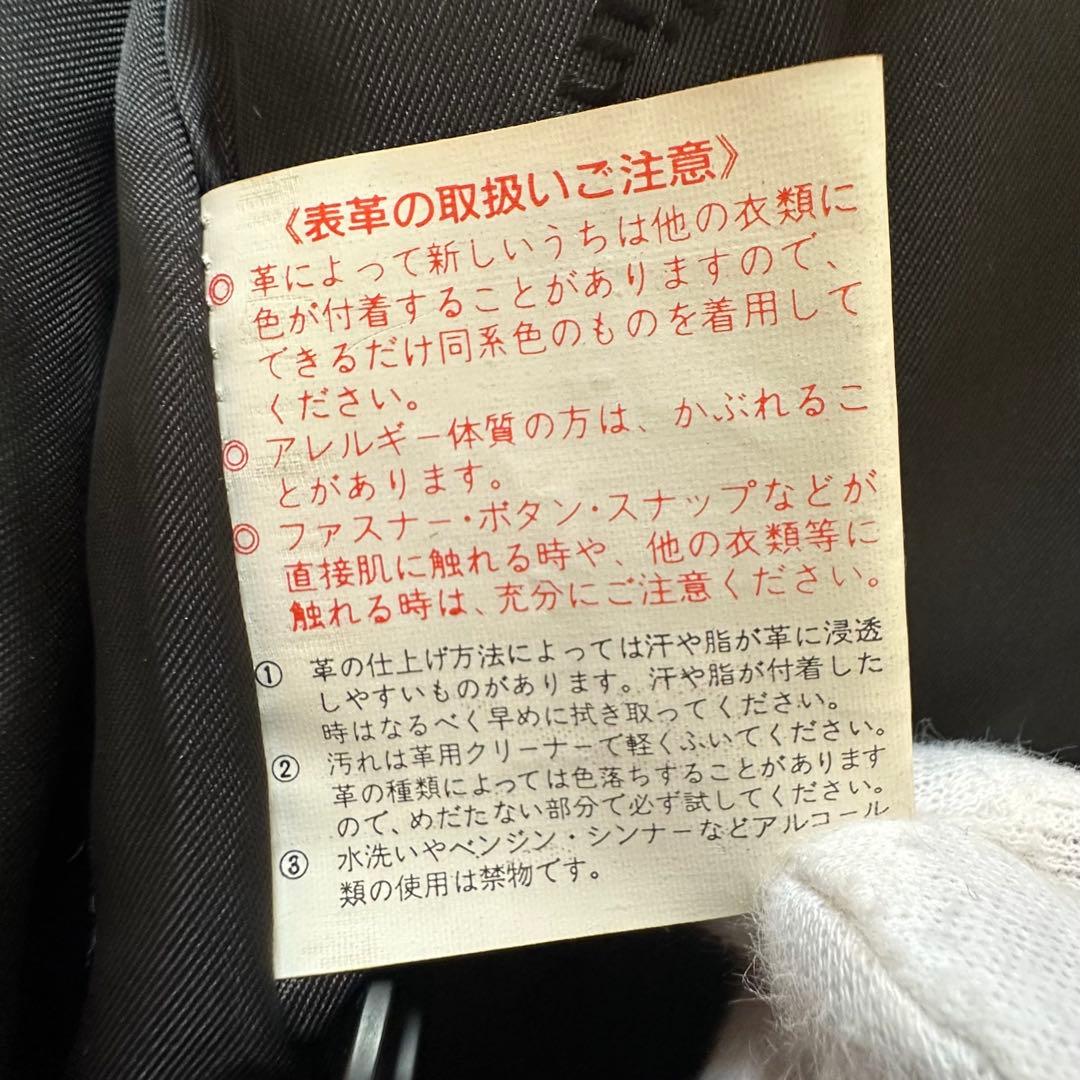 《表革の取扱いご注意》
◎ 革によって新しいうちは他の衣類に
色が付着することがありますので、
できるだけ同系色のものを着用して
ください。
◎ アレルギー体質の方は、かぶれるこ
とがあります。
◎ ファスナー・ボタン・スナップなどが
直接肌に触れる時や、他の衣類等に
触れる時は、充分にご注意ください。
① 革の仕上げ方法によっては汗や脂が革に浸透
しやすいものがあります。汗や脂が付着した
時はなるべく早めに拭き取ってください。
② 汚れは革用クリーナーで軽くふいてください。
革の種類によっては色落ちすることがあります
ので、めだたない部分で必ず試してください。
③ 水洗いやベンジン・シンナーなどアルコール
類の使用は禁物です。